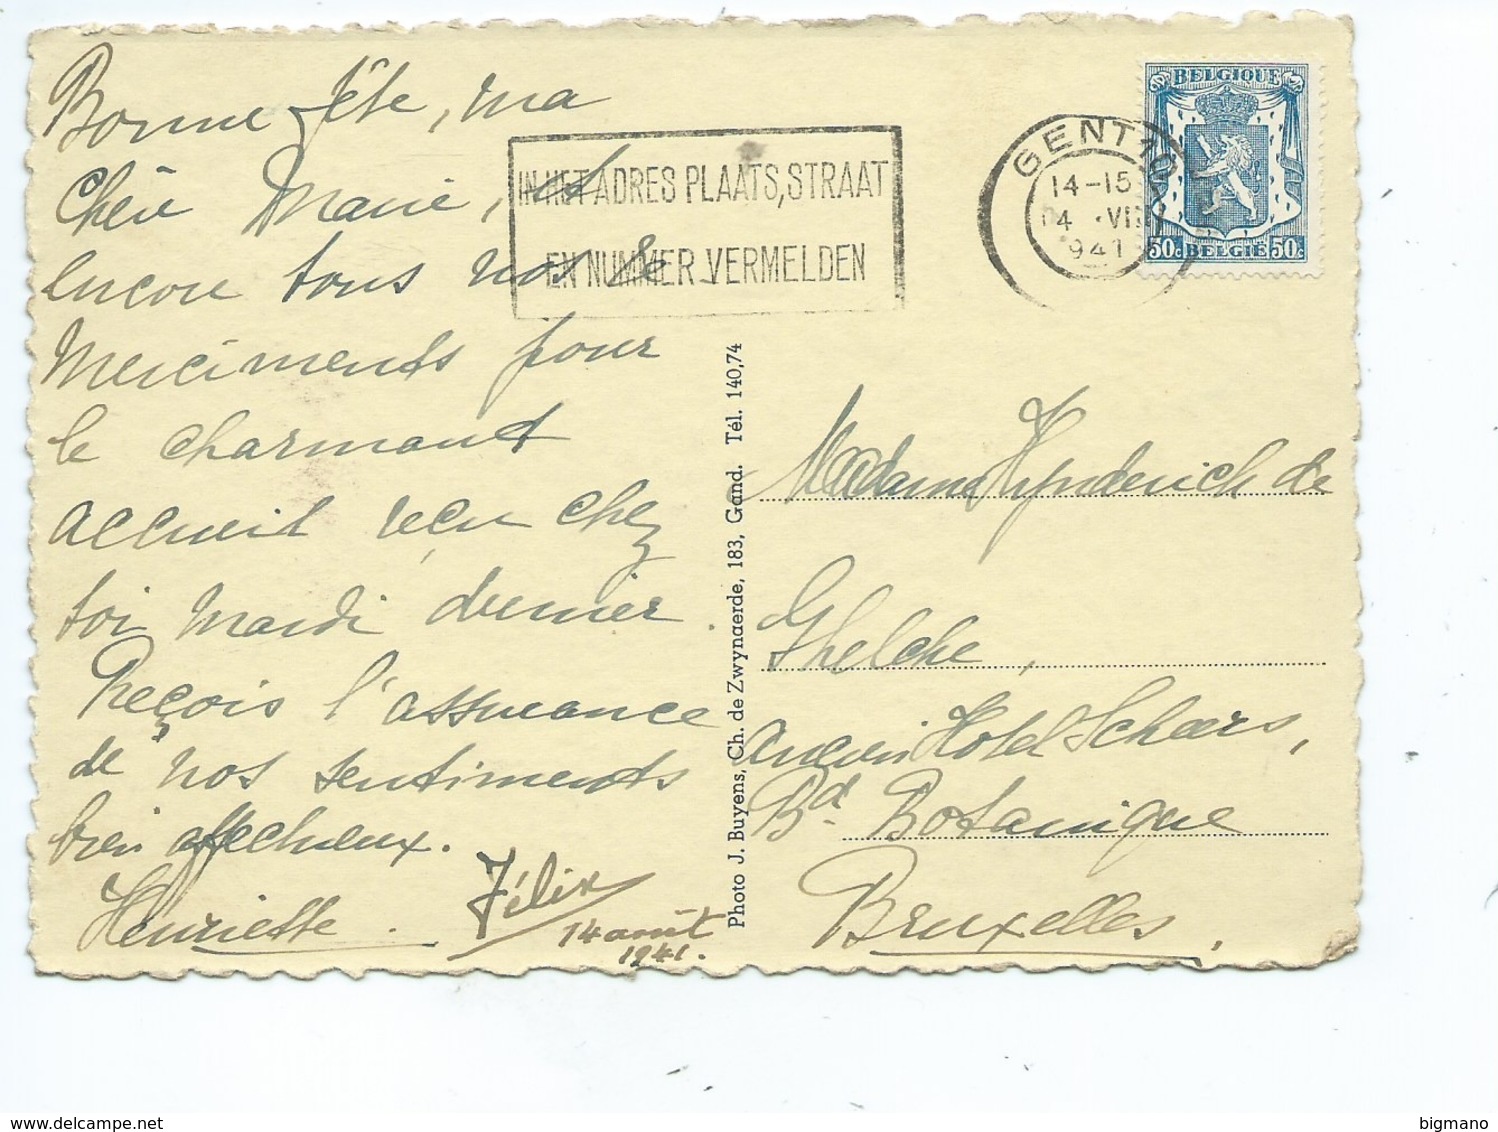 Bonne fête, ma
Chère Marie, et
encore tous nos re
merciments pour
le charmant
accueil reçu chez
toi mardi dernier.
Reçois l'assurance
de nos sentiments
bien affectueux.
Henriette. Félix
14 août
1941.
IN HET ADRES PLAATS, STRAAT
EN NUMMER VERMELDEN
GENT 10
14-15
14 VII
941
BELGIQUE
50c BELGIË 50c
Photo J. Buyens, Ch. de Zwynaerde, 183, Gand. Tél. 140,74
Madame Hynderick de
Ghelcke,
ancien Hotel Scheers,
Bd. Botanique
Bruxelles.
bigmano